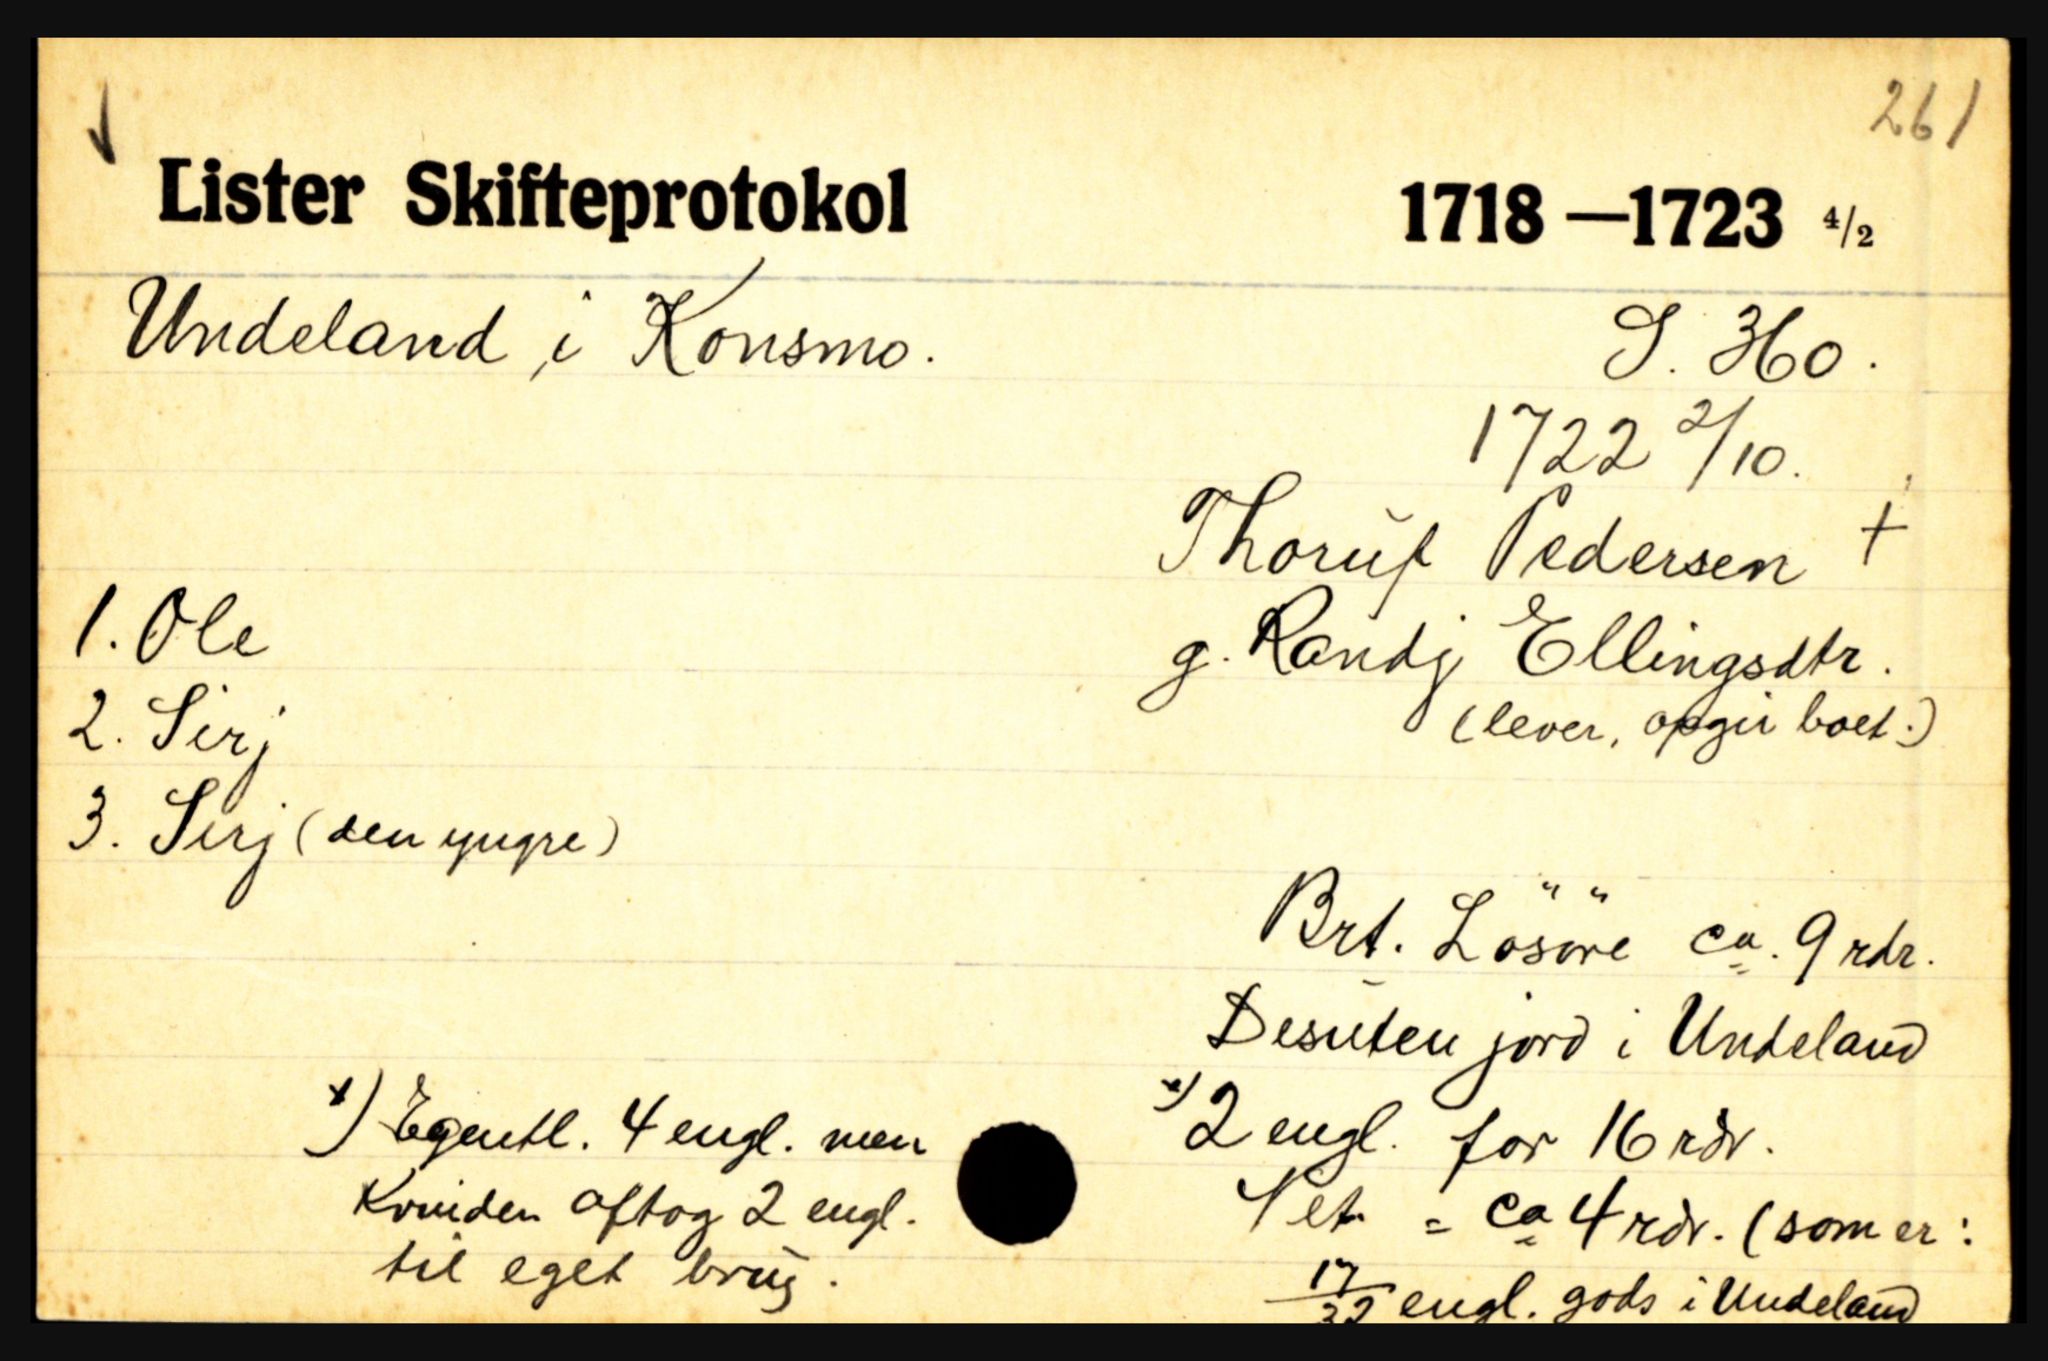 261
Lister Skifteprotokol 1718—1723 4/2
Undeland, i Konsmo.
S. 360.
1722 2/10.
Thoruf Pedersen +
g. Randj Ellingsdtr.
(lever, opgir boet.)
1. Ole
2. Sirj
3. Sirj (den yngre)
Brt. Lösöre ca. 9 rdr.
Desuten jord i Undeland
x) 2 engl. for 16 rdr.
Net. = ca 4 rdr. (som er:
17/32 engl. gods i Undeland
x) Egentl. 4 engl. men
Kvinden aftog 2 engl.
til eget brug.